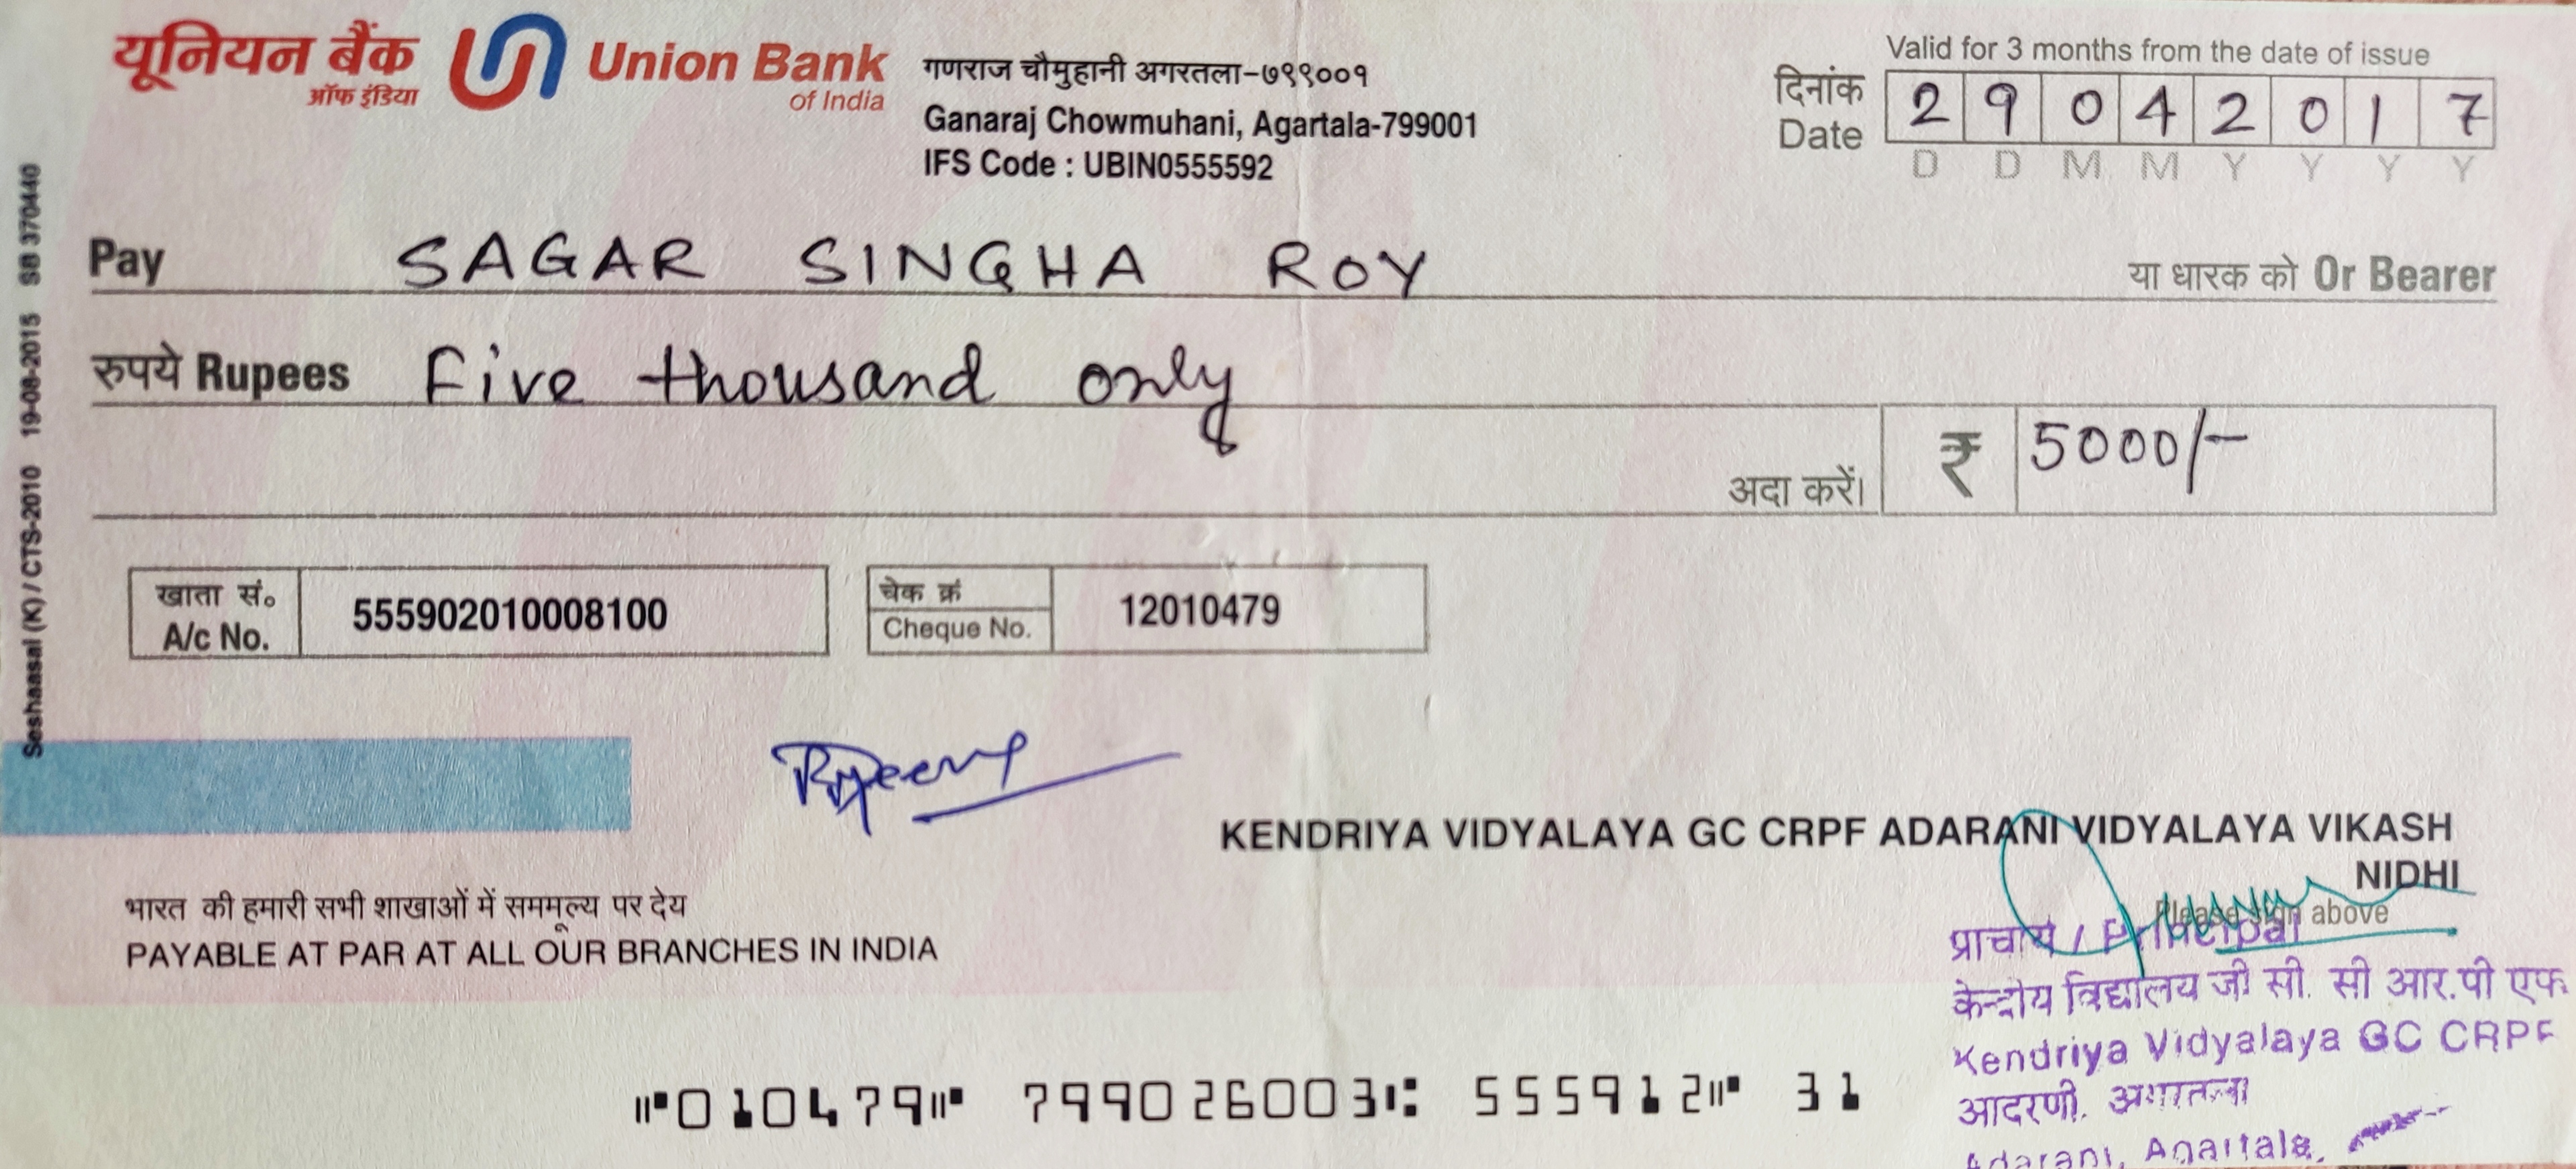 यूनियन बैंक
ऑफ इंडिया
Union Bank
of India
गणराज चौमुहानी अगरतला-७९९००१
Ganaraj Chowmuhani, Agartala-799001
IFS Code : UBIN0555592
Valid for 3 months from the date of issue
दिनांक
Date
2 9 0 4 2 0 1 7
D D M M Y Y Y Y
Seshaasai (K) / CTS-2010 19-08-2015 SB 370440
Pay SAGAR SINGHA ROY या धारक को Or Bearer
रुपये Rupees Five thousand only
अदा करें। ₹ 5000/-
खाता सं॰
A/c No.
555902010008100
चेक क्रं
Cheque No.
12010479
KENDRIYA VIDYALAYA GC CRPF ADARANI VIDYALAYA VIKASH
NIDHI
Please sign above
भारत की हमारी सभी शाखाओं में सममूल्य पर देय
PAYABLE AT PAR AT ALL OUR BRANCHES IN INDIA
प्राचार्य / Principal
केन्द्रीय विद्यालय जी सी. सी आर.पी एफ
Kendriya Vidyalaya GC CRPF
आदरणी. अगरतला
Adarani, Agartala.
⑈010479⑈ 799026003⑆ 555912⑈ 31